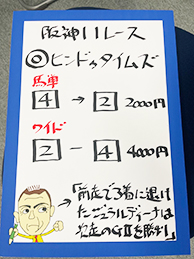 阪神11レース
◎ヒンドゥタイムズ
馬単
4→2 2000円
ワイド
2-4 4000円
→「前走で3着に退け
たジェラルディーナは
次走のGⅡを勝利」